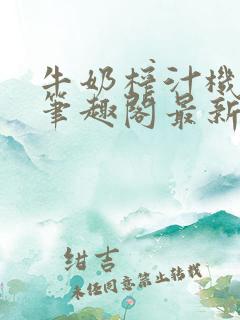 牛奶榨汁機
筆趣閣最新
紺吉
未經同意禁止轉載